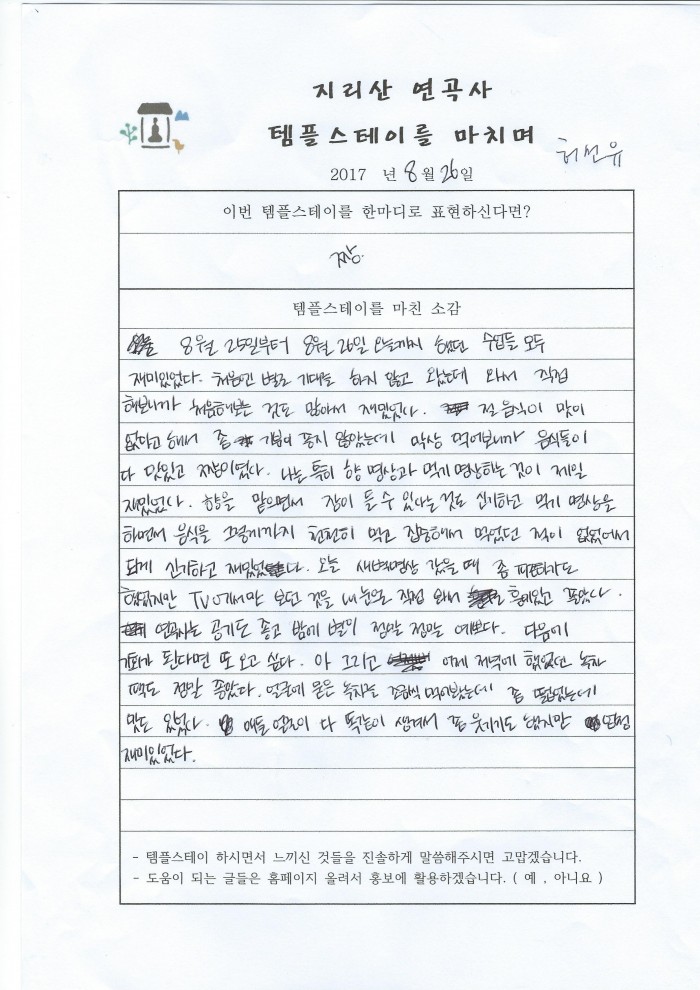 지리산 연곡사
템플스테이를 마치며
허선유
2017 년 8월 26일
이번 템플스테이를 한마디로 표현하신다면?
짱.
템플스테이를 마친 소감
8월 25일부터 8월 26일 오늘까지 했던 수업들 모두
재미있었다. 처음엔 별로 기대를 하지 않고 왔는데 와서 직접
해보니까 처음해보는 것도 많아서 재밌었다. 절 음식이 맛이
없다고 해서 좀 기분이 좋지 않았는데 막상 먹어보니까 음식들이
다 맛있고 짱이였다. 나는 특히 향 명상과 먹기 명상하는 것이 제일
재밌었다. 향을 맡으면서 잠이 들 수 있다는 것도 신기하고 먹기 명상을
하면서 음식을 그렇게까지 천천히 먹고 집중해서 먹었던 적이 없었어서
되게 신기하고 재밌었다. 오늘 새벽명상 갔을 때 좀 피곤하기도
했었지만 TV에서만 보던 것을 내 눈으로 직접 와서 흥미있고 좋았다.
연곡사는 공기도 좋고 밤에 별이 정말 정말 예쁘다. 다음에
기회가 된다면 또 오고 싶다. 아 그리고 어제 저녁에 했었던 녹차
팩도 정말 좋았다. 얼굴에 묻은 녹차를 조금씩 먹어봤는데 좀 떫었는데
맛도 있었다. 애들 얼굴이 다 똑같이 생겨서 좀 웃기기도 했지만
재미있었다.
- 템플스테이 하시면서 느끼신 것들을 진솔하게 말씀해주시면 고맙겠습니다.
- 도움이 되는 글들은 홈페이지 올려서 홍보에 활용하겠습니다. ( 예 , 아니요 )